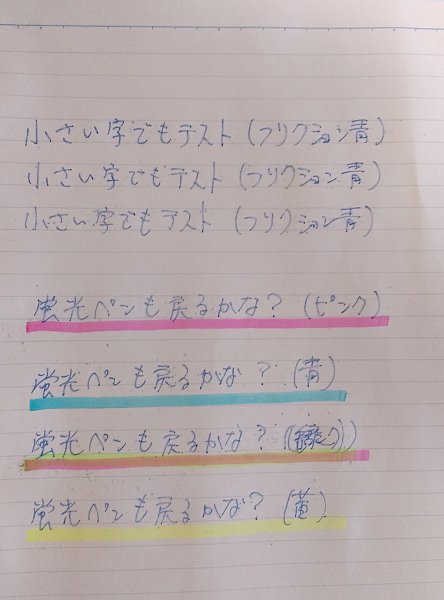 小さい字でもテスト(フリクション青)
小さい字でもテスト(フリクション青)
小さい字でもテスト(フリクション青)
蛍光ペンも戻るかな?(ピンク)
蛍光ペンも戻るかな?(青)
蛍光ペンも戻るかな?
蛍光ペンも戻るかな?(黄)